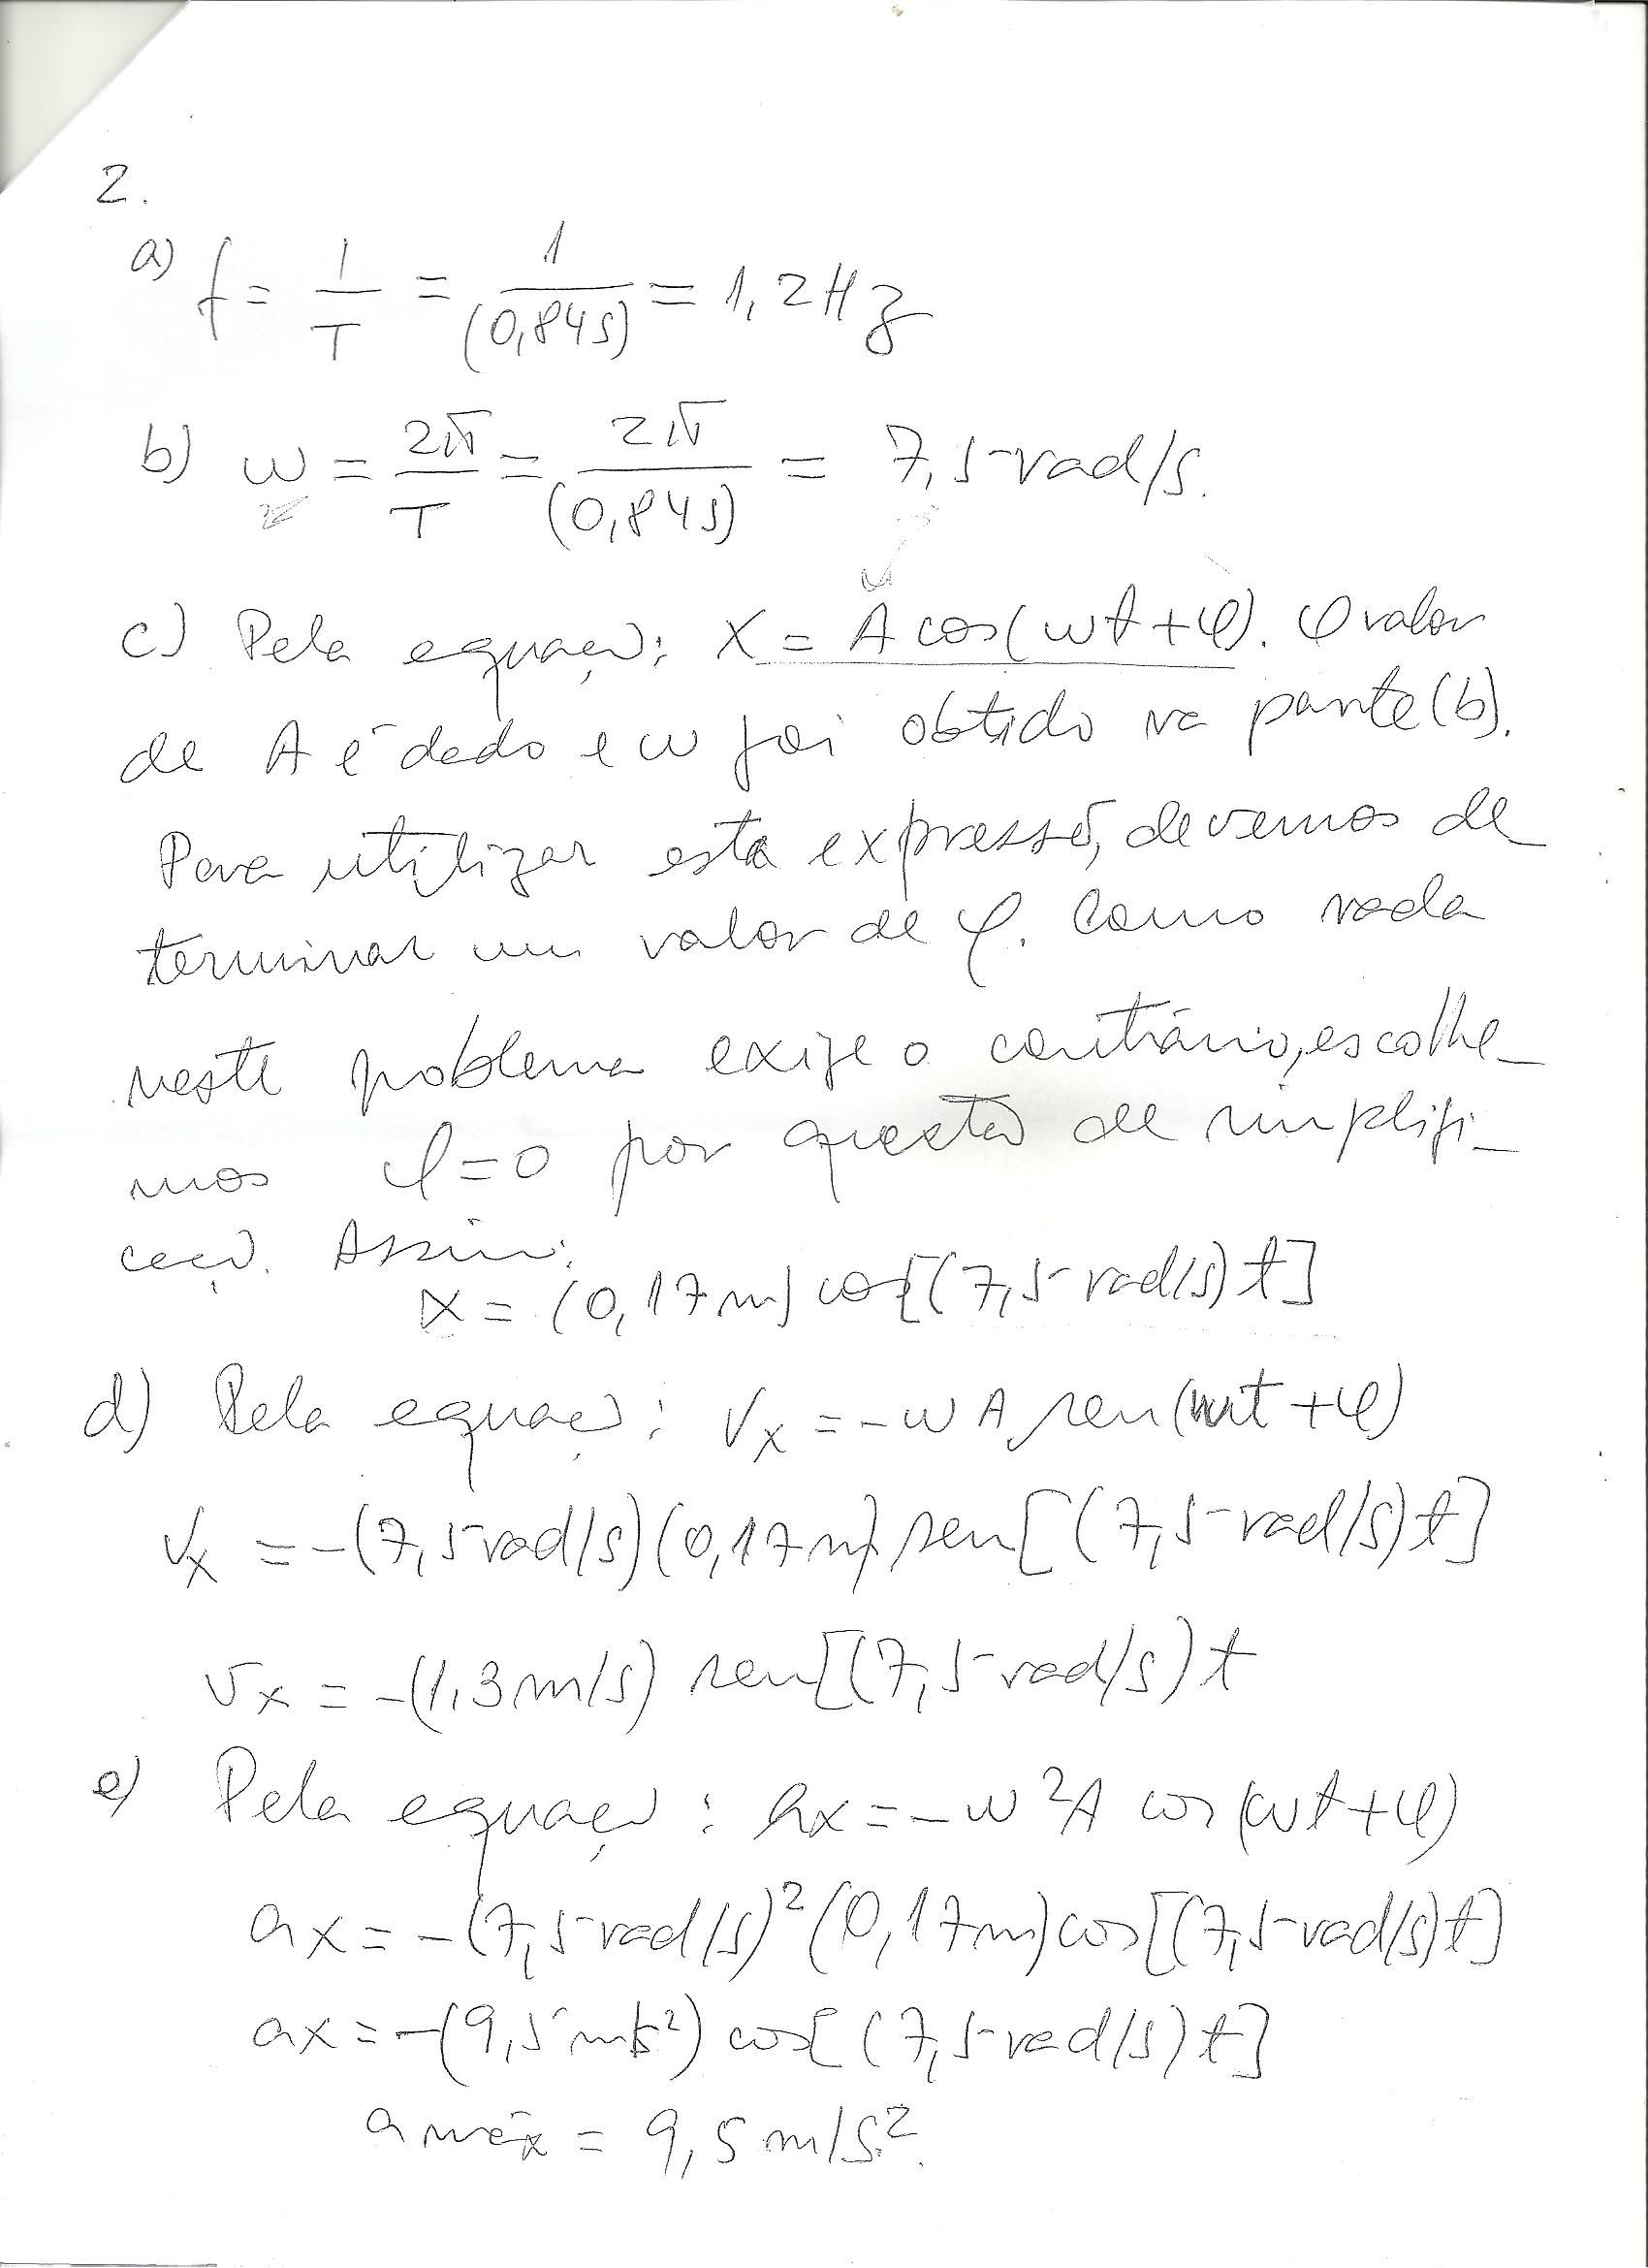 2.
a) f = 1/T = 1/(0,84s) = 1,2Hz
b) w = 2π/T = 2π/(0,84s) = 7,5 rad/s.
c) Pela equação: x = A cos(wt+φ). O valor
de A é dado e w foi obtido na parte (b).
Para utilizar esta expressão, devemos de
terminar um valor de φ. Como nada
neste problema exige o contrário, escolhe-
mos φ=0 por questão de simplifi-
cação. Assim:
x = (0,17m) cos[(7,5 rad/s) t]
d) Pela equação: Vx = -wA sen(wt+φ)
Vx = -(7,5 rad/s)(0,17m) sen[(7,5 rad/s) t]
Vx = -(1,3m/s) sen[(7,5 rad/s) t
e) Pela equação: ax = -w²A cos(wt+φ)
ax = -(7,5 rad/s)²(0,17m) cos[(7,5 rad/s) t]
ax = -(9,5 m/s²) cos[(7,5 rad/s) t]
a máx = 9,5 m/s².